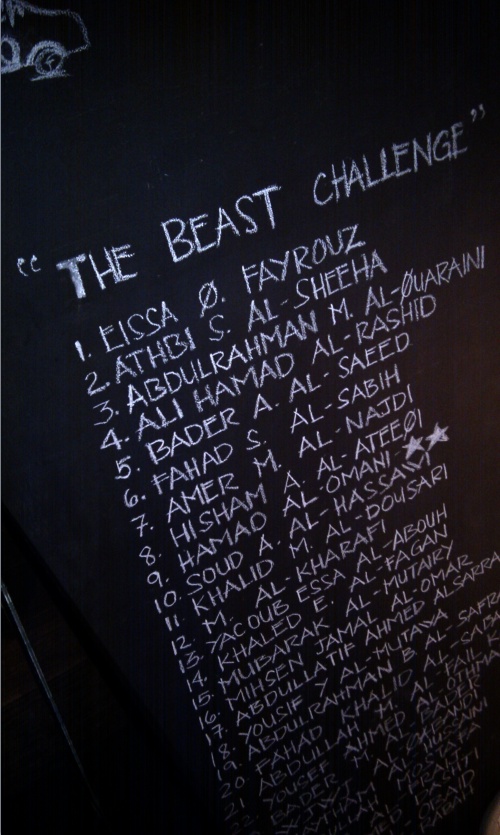 “ THE BEAST CHALLENGE ”
1. EISSA Ø. FAYROUZ
2. ATHBI S. AL-SHEEHA
3. ABDULRAHMAN M. AL-ØUARAINI
4. ALI HAMAD AL-RASHID
5. BADER A. AL-SAEED
6. FAHAD S. AL-SABIH
7. AMER M. AL-NAJDI
8. HISHAM A. AL-ATEEØI
9. HAMAD AL-OMANI-★★
10. SOUD A. AL-HASSAWI
11. KHALID M. AL-DOUSARI
12. M. AL-KHARAFI
13. YACOUB ESSA AL-ABOUH
14. KHALED E. AL-FAGAN
15. MUBARAK AL-MUTAIRY
16. MIHSEN JAMAL AL-OMAR
17. ABDULLATIF AHMED ALSARRA
18. YOUSIF AL-MUTAWA
19. ABDULRAHMAN B. AL SAFRA
20 FAHAD KHALID AL-SABA
21 ABDULLAH M. AL-FAIL
22 YOUSEF AHMED AL-OTHM
BADER M. AL-BADER